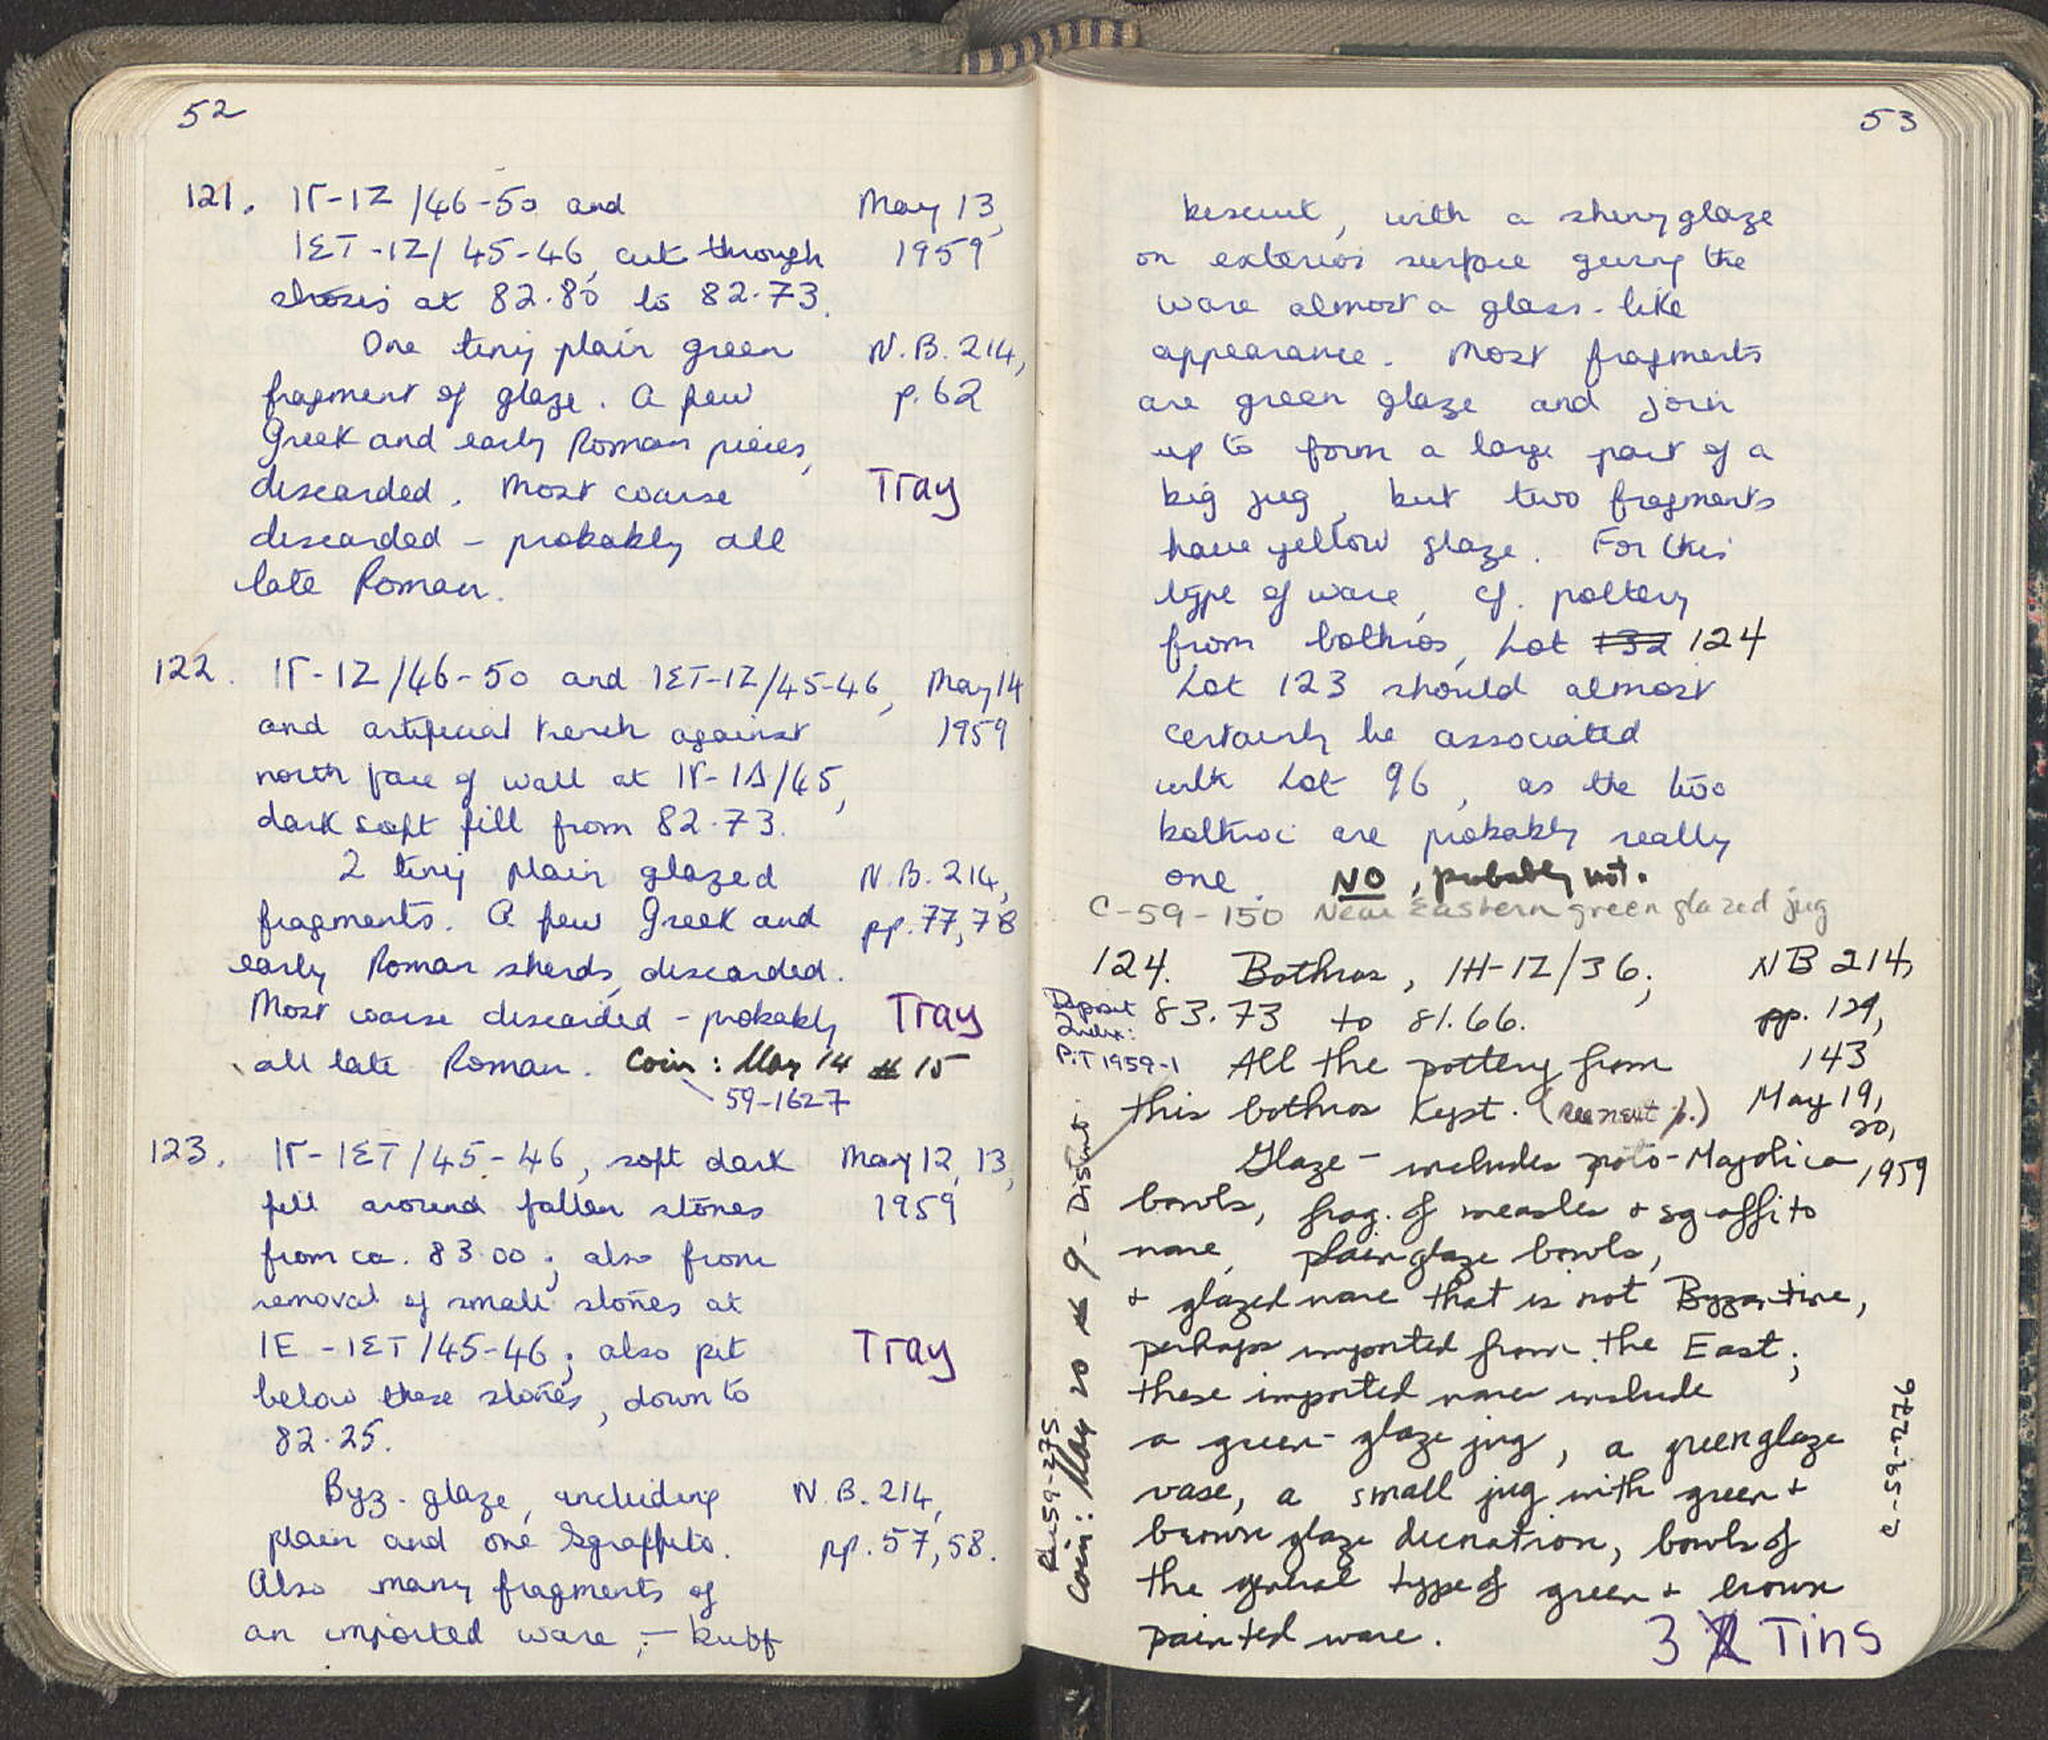 52
121. IΓ-IZ /46-50 and May 13,
IΣT-IZ/ 45-46, cut through 1959
at 82.80 to 82.73.
One tiny plain green N.B. 214,
fragment of glaze. A few p. 62
Greek and early Roman pieces,
discarded. Most coarse Tray
discarded - probably all
late Roman.
122. IΓ-IZ/46-50 and IΣT-IZ/45-46, May 14
and artificial trench against 1959
north face of wall at IΓ-IΔ/45,
dark soft fill from 82.73.
2 tiny plain glazed N.B. 214,
fragments. A few Greek and pp. 77, 78
early Roman sherds, discarded.
Most coarse discarded - probably Tray
all late Roman. Coin: May 14 # 15
59-1627
123. IΓ-IΣT/45-46, soft dark May 12, 13,
fill around fallen stones 1959
from ca. 83.00; also from
removal of small stones at
IE-IΣT/45-46; also pit Tray
below these stones, down to
82.25.
Byz. glaze, including N.B. 214,
plain and one Sgraffito. pp. 57, 58.
Also many fragments of
an imported ware, - buff
53
biscuit, with a shiny glaze
on exterior surface giving the
ware almost a glass-like
appearance. Most fragments
are green glaze and join
up to form a large part of a
big jug, but two fragments
have yellow glaze. For this
type of ware, cf. pottery
from bothros, Lot 132 124
Lot 123 should almost
certainly be associated
with Lot 96, as the two
bothroi are probably really
one. NO, probably not.
C-59-150 Near Eastern green glazed jug
124. Bothros, IH-IZ/36; NB 214,
Deposit Index: Pit 1959-1
83.73 to 81.66. pp. 129,
All the pottery from 143
this bothros kept. (see next p.) May 19,
20,
Glaze - includes proto-Majolica, 1959
bowls, frag. of measles + sgraffito
ware, plain glaze bowls,
+ glazed ware that is not Byzantine,
perhaps imported from the East;
these imported wares include
a green-glaze jug, a green glaze
vase, a small jug with green +
brown glaze decoration, bowls of
the general type of green + brown
painted ware.
3 2 Tins
59-275
Coin: May 20 # 9 - Disint.
C-59-276